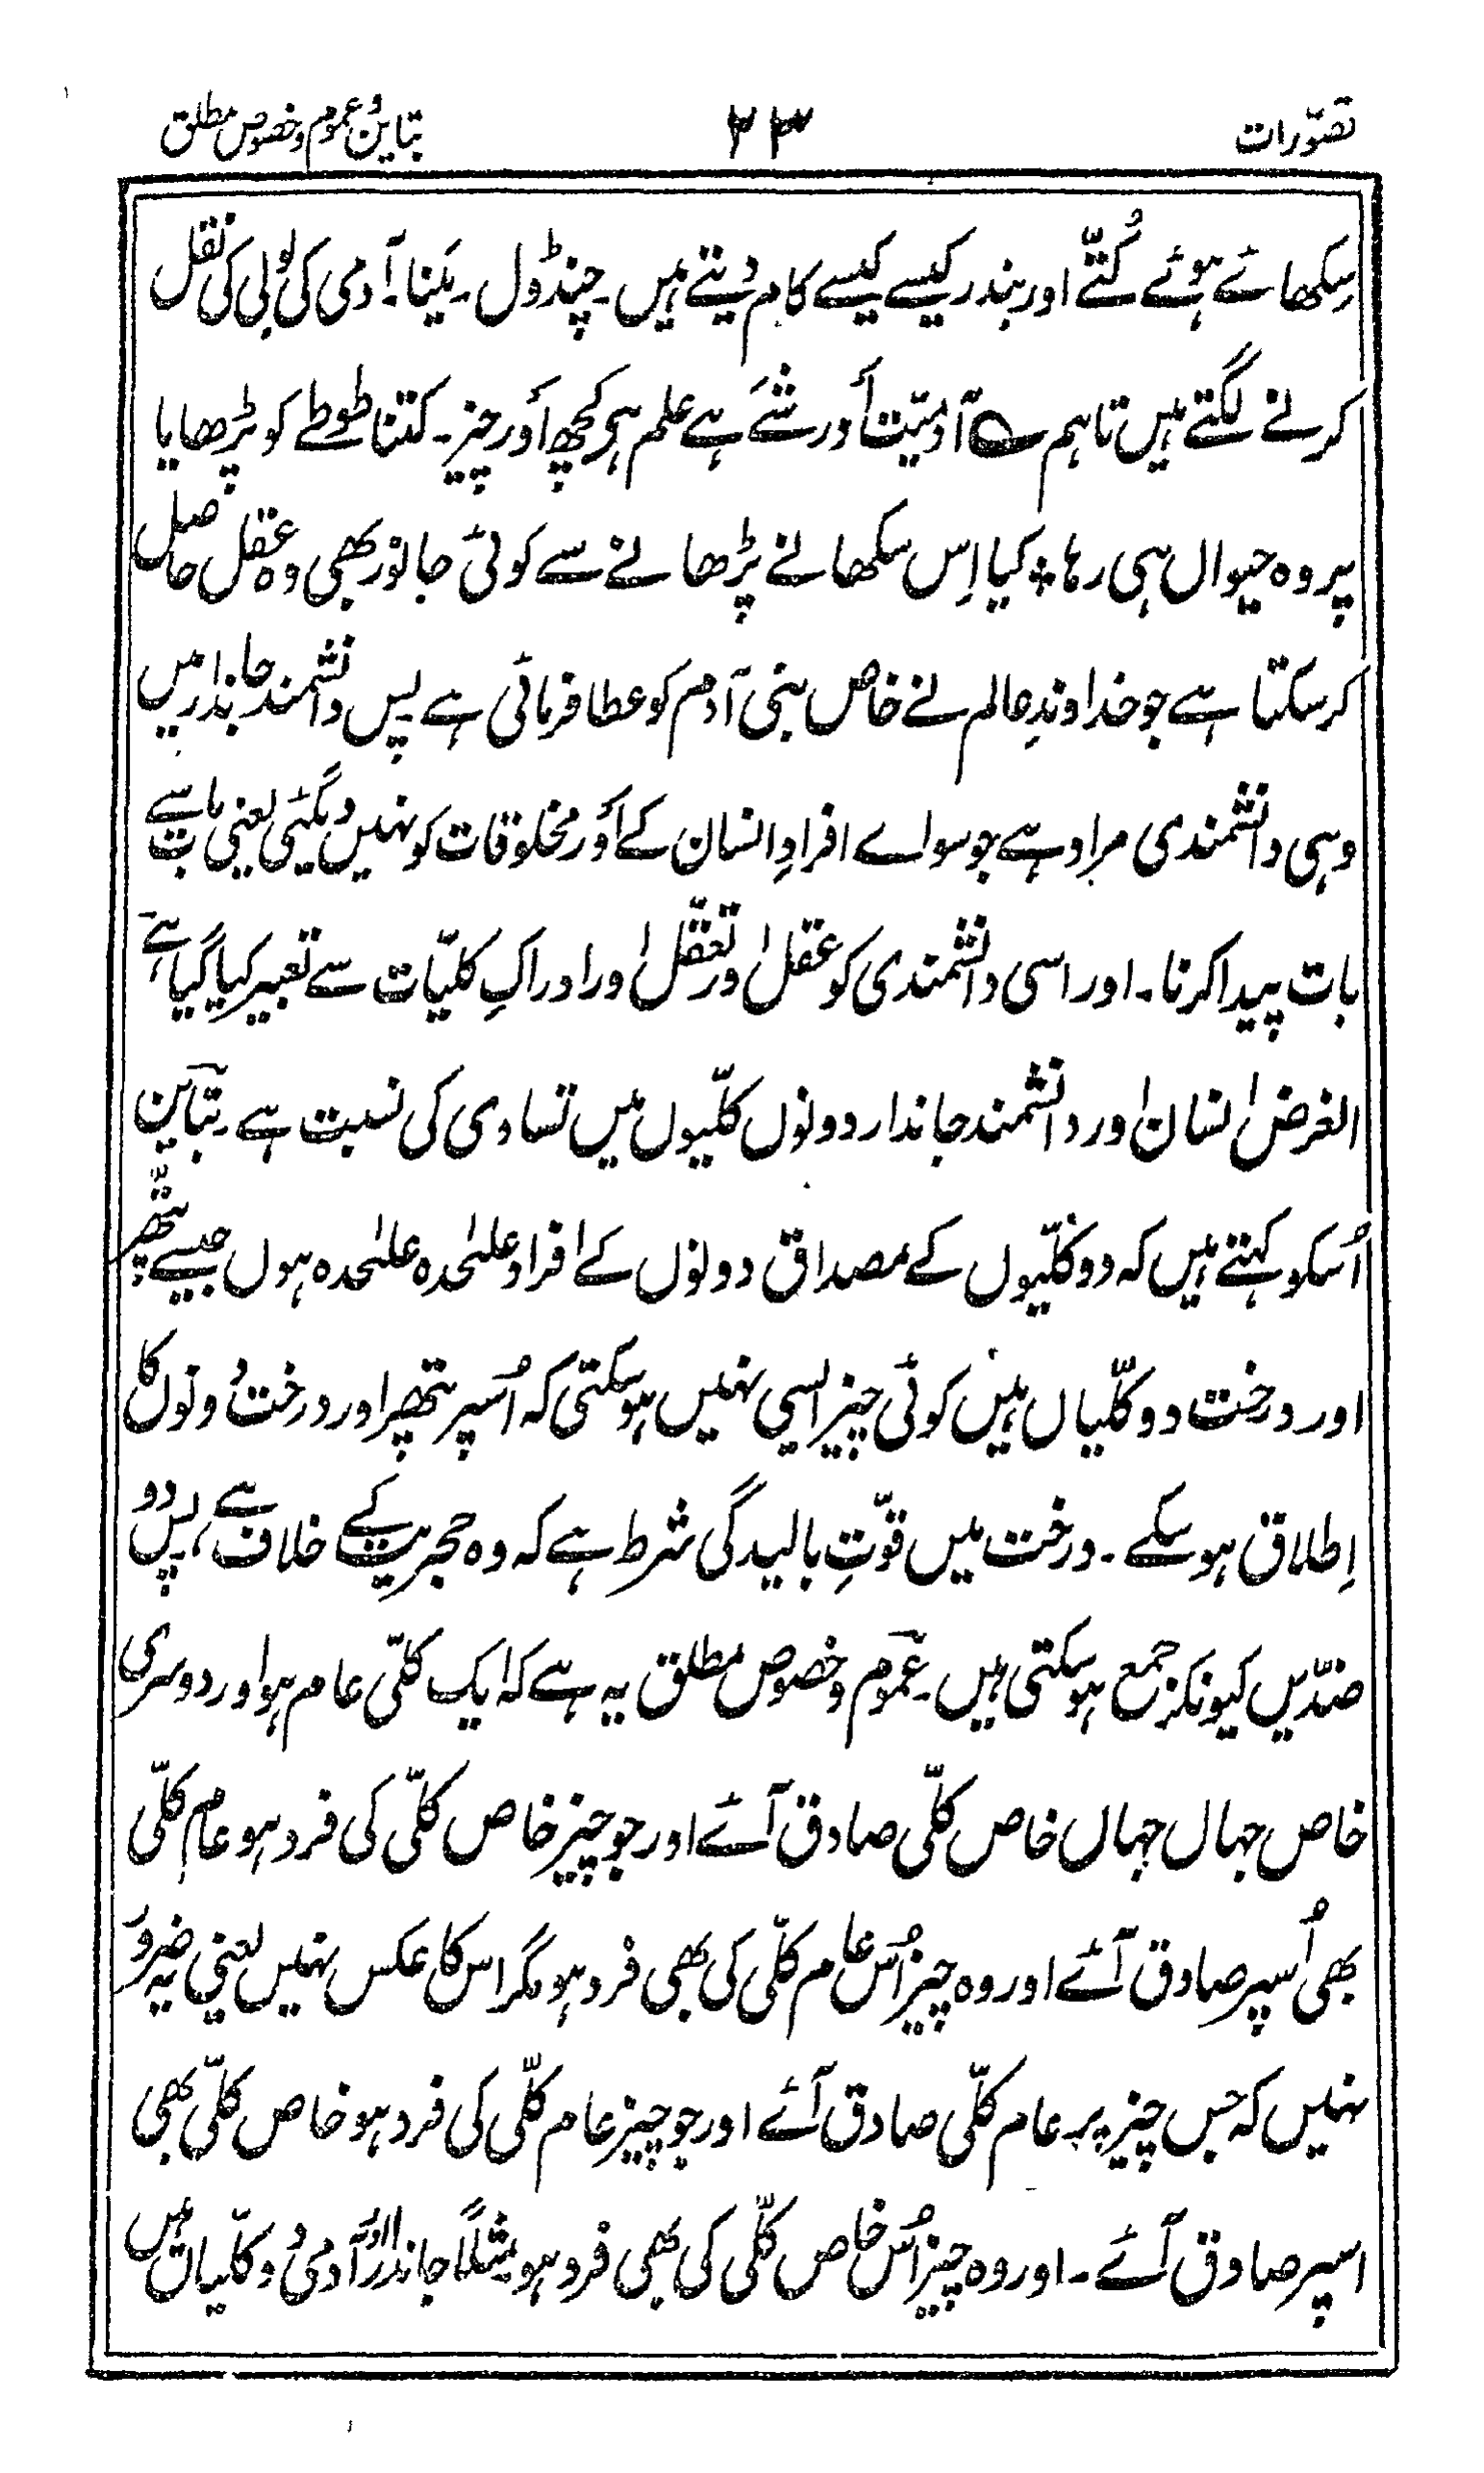 تصوّرات ۲۳ تباین و عموم و خصوص مطلق
سِکھائے ہوئے کُتّے اور بندر کیسے کیسے کام دیتے ہیں۔ چنڈول۔ مَینا۔ آدمی کی بولی کی نقل
کرنے لگتے ہیں تاہم ؎ آدمیّت اَور شَے ہے علم ہی کچھ اَور چیز۔ کتنا طوطے کو پڑھایا
پر وہ حیواں ہی رہا ٭ کیا اِس سکھانے پڑھانے سے کوئی جانور بھی وہ عقل حاصل
کر سکتا ہے جو خداوندِ عالم نے خاص بنی آدم کو عطا فرمائی ہے پس دانشمند جاندار میں
وہی دانشمندی مراد ہے جو سواے افرادِ انسان کے اَور مخلوقات کو نہیں دیگئی یعنی بات سے
بات پیدا کرنا۔ اور اسی دانشمندی کو عقل اور تعقّل اور ادراکِ کلیّات سے تعبیر کیا گیا ہے
الغرض انسان اور دانشمند جاندار دونوں کلّیوں میں تساوی کی نسبت ہے۔ تباین
اُسکو کہتے ہیں کہ دو کلّیوں کے مصداق دونوں کے افراد علیٰحدہ علیٰحدہ ہوں جیسے پتّھر
اور درخت دو کلّیاں ہیں کوئی چیز ایسی نہیں ہو سکتی کہ اُسپر پتھر اور درخت دونوں کا
اِطلاق ہو سکے۔ درخت میں قوّتِ بالیدگی شرط ہے کہ وہ حجریت کے خلاف ہے، پس دو
ضدّیں کیونکر جمع ہو سکتی ہیں۔ عموم و خصوص مطلق یہ ہے کہ ایک کلّی عام ہو اور دوسری
خاص جہاں جہاں خاص کلّی صادق آئے اور جو چیز خاص کلّی کی فرد ہو عام کلّی
بھی اُسپر صادق آئے اور وہ چیز اُس عام کلّی کی بھی فرد ہو مگر اس کا عکس نہیں یعنی یہ ضرور
نہیں کہ جس چیز پر عام کلّی صادق آئے اور جو چیز عام کلّی کی فرد ہو خاص کلّی بھی
اسپر صادق آئے۔ اور وہ چیز اُس خاص کلّی کی بھی فرد ہو مثلاً جاندار اور آدمی دو کلّیاں ہیں